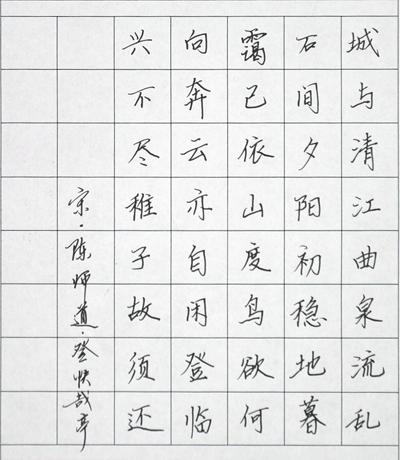 城与清江曲泉流乱
石间夕阳初稳地暮
霭已依山度鸟欲何
向奔云亦自闲登临
兴不尽稚子故须还
宋·陈师道·登快哉亭